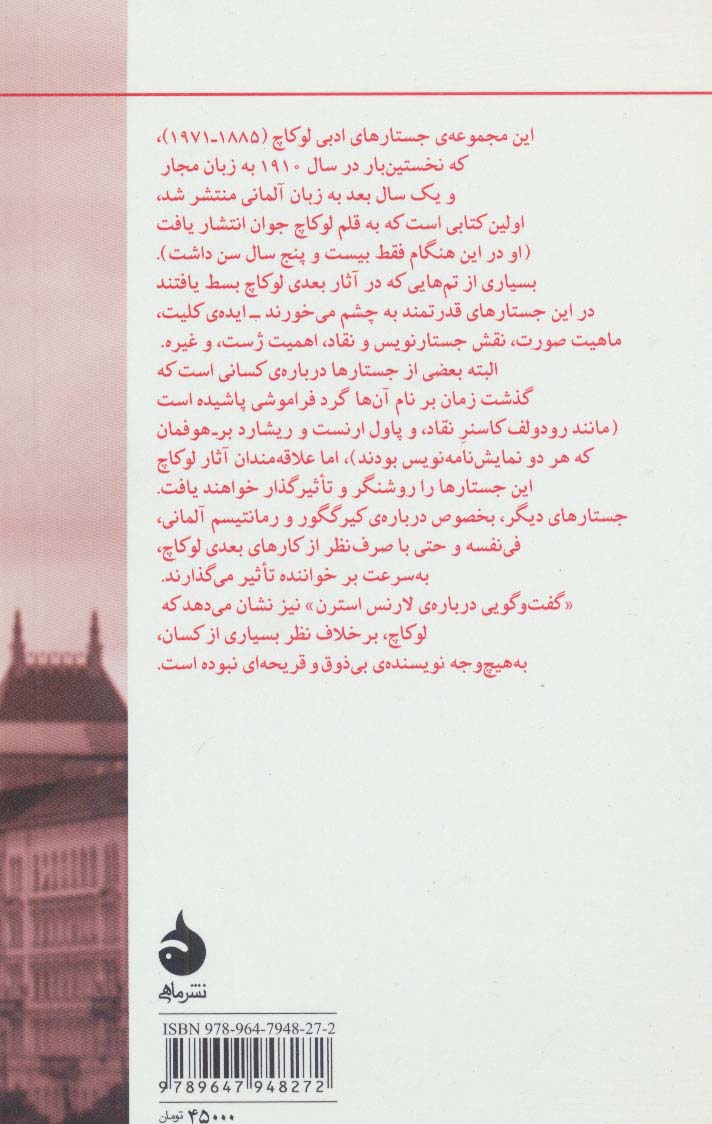 این مجموعه‌ی جستارهای ادبی لوکاچ (۱۸۸۵-۱۹۷۱)،
که نخستین‌بار در سال ۱۹۱۰ به زبان مجار
و یک سال بعد به زبان آلمانی منتشر شد،
اولین کتابی است که به قلم لوکاچ جوان انتشار یافت
(او در این هنگام فقط بیست و پنج سال سن داشت).
بسیاری از تم‌هایی که در آثار بعدی لوکاچ بسط یافتند
در این جستارهای قدرتمند به چشم می‌خورند ــ ایده‌ی کلیت،
ماهیت صورت، نقش جستارنویس و نقاد، اهمیت ژست، و غیره.
البته بعضی از جستارها درباره‌ی کسانی است که
گذشت زمان بر نام آن‌ها گرد فراموشی پاشیده است
(مانند رودولف کاسنرِ نقاد، و پاول ارنست و ریشارد بر-هوفمان
که هر دو نمایش‌نامه‌نویس بودند)، اما علاقه‌مندان آثار لوکاچ
این جستارها را روشنگر و تأثیرگذار خواهند یافت.
جستارهای دیگر، بخصوص درباره‌ی کیرگگور و رمانتیسم آلمانی،
فی‌نفسه و حتی با صرف‌نظر از کارهای بعدی لوکاچ،
به‌سرعت بر خواننده تأثیر می‌گذارند.
«گفت‌وگویی درباره‌ی لارنس استرن» نیز نشان می‌دهد که
لوکاچ، برخلاف نظر بسیاری از کسان،
به‌هیچ‌وجه نویسنده‌ی بی‌ذوق و قریحه‌ای نبوده است.
نشر ماهی
ISBN 978-964-7948-27-2
9 789647 948272
۴۵۰۰۰ تومان